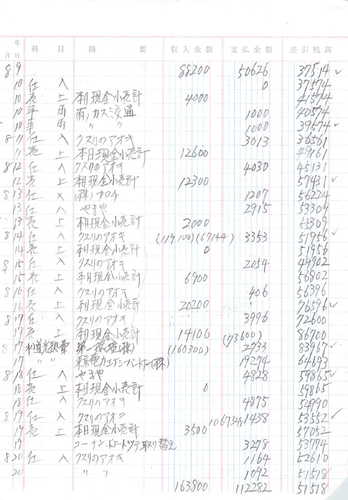 年 月 日 科 目 摘 要 収入金額 支払金額 差引残高
8 9 88200 50626 37514
10 仕入 0 37574
10 売上 本日現金小売計 4000 41574
10 車両 1000 40574
10 車両 〃 〃 1000 39574
8 11 仕入 クスリのアオキ 3013 36561
11 売上 本日現金小売計 12600 49161
8 12 仕入 クスリのアオキ 4030 45131
12 売上 本日現金小売計 12300 57431
8 13 仕入 1207 56224
13 仕入 やまや 2915 53309
13 売上 本日現金小売計 2000 55309
8 14 仕入 クスリのアオキ (119100) (167144) 3353 51956
14 売上 本日現金小売計 0 51956
8 15 仕入 クスリのアオキ 2054 49902
15 売上 本日現金小売計 6900 56802
8 16 仕入 クスリのアオキ 406 56396
16 売上 本日現金小売計 20200 76596
8 17 仕入 クスリのアオキ 3996 72600
17 売上 本日現金小売計 14100 (73600) 86700
8 17 水道光熱費 (160300) 2733 83967
17 〃 19274 64693
8 18 仕入 やまや 4828 59865
18 売上 本日現金小売計 0 59865
18 仕入 クスリのアオキ 4875 54990
8 19 仕入 クスリのアオキ 1438 53552
19 売上 本日現金小売計 3500 57052
19 コーナン 取り替え 3278 53774
8 20 仕入 クスリのアオキ 1164 52610
20 〃 〃 1092 51518
163800 112282 51518